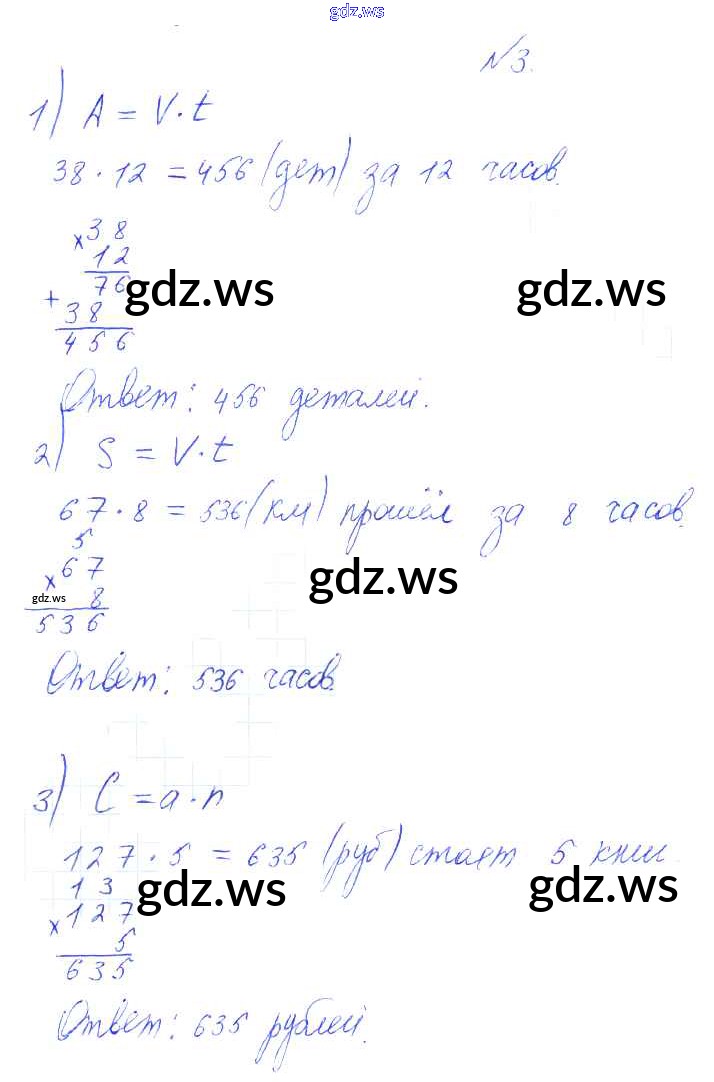 gdz.ws
№3.
1) A = V·t
38·12 = 456 (дет) за 12 часов.
× 38
12
76
gdz.ws gdz.ws
+ 38
456
Ответ: 456 деталей.
2) S = V·t
67·8 = 536 (км) прошёл за 8 часов.
5
× 67
gdz.ws
gdz.ws 8
536
Ответ: 536 часов.
3) C = a·n
127·5 = 635 (руб) стоят 5 книг
13
gdz.ws gdz.ws
× 127
5
635
Ответ: 635 рублей.